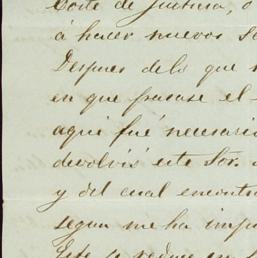 Corte de Justicia, o
á hacer nuevos
Despues delo que
en que pasase el
aqui fué necesario
devolvió este Sor.
y del cual encontr
segun me ha imp
Este se reduce en